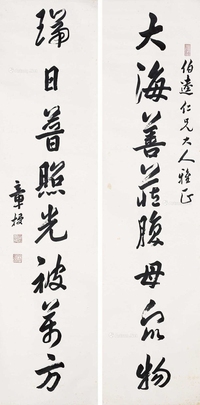 伯仁兄大人雅正
大海善腹母物
瑞日普照光被萬方
章梫